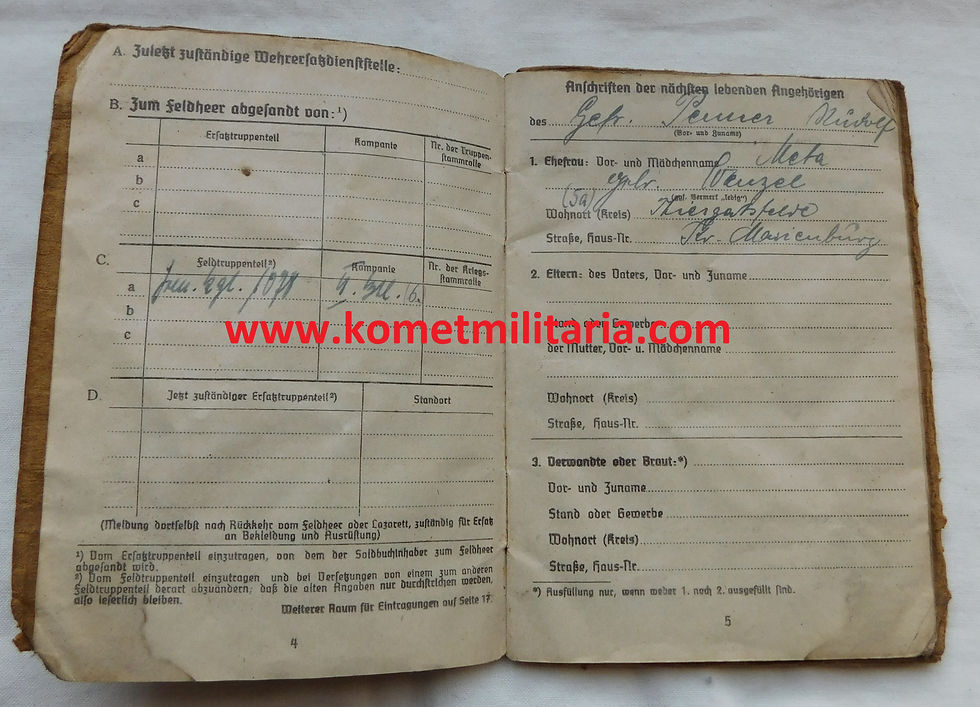 A. Zuletzt zuständige Wehrersatzdienststelle:
B. Zum Feldheer abgesandt von:¹)
Ersatztruppenteil
Kompanie
Nr. der Truppen-
stammrolle
a
b
c
C.
Feldtruppenteil²)
Kompanie
Nr. der Kriegs-
stammrolle
a
b
c
D.
Jetzt zuständiger Ersatztruppenteil²)
Standort
(Meldung dortselbst nach Rückkehr vom Feldheer oder Lazarett, zuständig für Ersatz
an Bekleidung und Ausrüstung)
¹) Vom Ersatztruppenteil einzutragen, von dem der Soldbuchinhaber zum Feldheer
abgesandt wird.
²) Vom Feldtruppenteil einzutragen und bei Versetzungen von einem zum anderen
Feldtruppenteil derart abzuändern, daß die alten Angaben nur durchstrichen werden,
also leserlich bleiben.
Weiterer Raum für Eintragungen auf Seite 17.
4
Anschriften der nächsten lebenden Angehörigen
des Gefr. Penner Rudolf
(Vor- und Zuname)
1. Ehefrau: Vor- und Mädchenname Meta
geb. Wenzel
(5a) (ggf. Vermerk „ledig")
Wohnort (Kreis) Thiergartsfelde
Straße, Haus-Nr. Kr. Marienburg
2. Eltern: des Vaters, Vor- und Zuname
Stand oder Gewerbe
der Mutter, Vor- u. Mädchenname
Wohnort (Kreis)
Straße, Haus-Nr.
3. Verwandte oder Braut:*)
Vor- und Zuname
Stand oder Gewerbe
Wohnort (Kreis)
Straße, Haus-Nr.
*) Ausfüllung nur, wenn weder 1. noch 2. ausgefüllt sind.
5
www.kometmilitaria.com